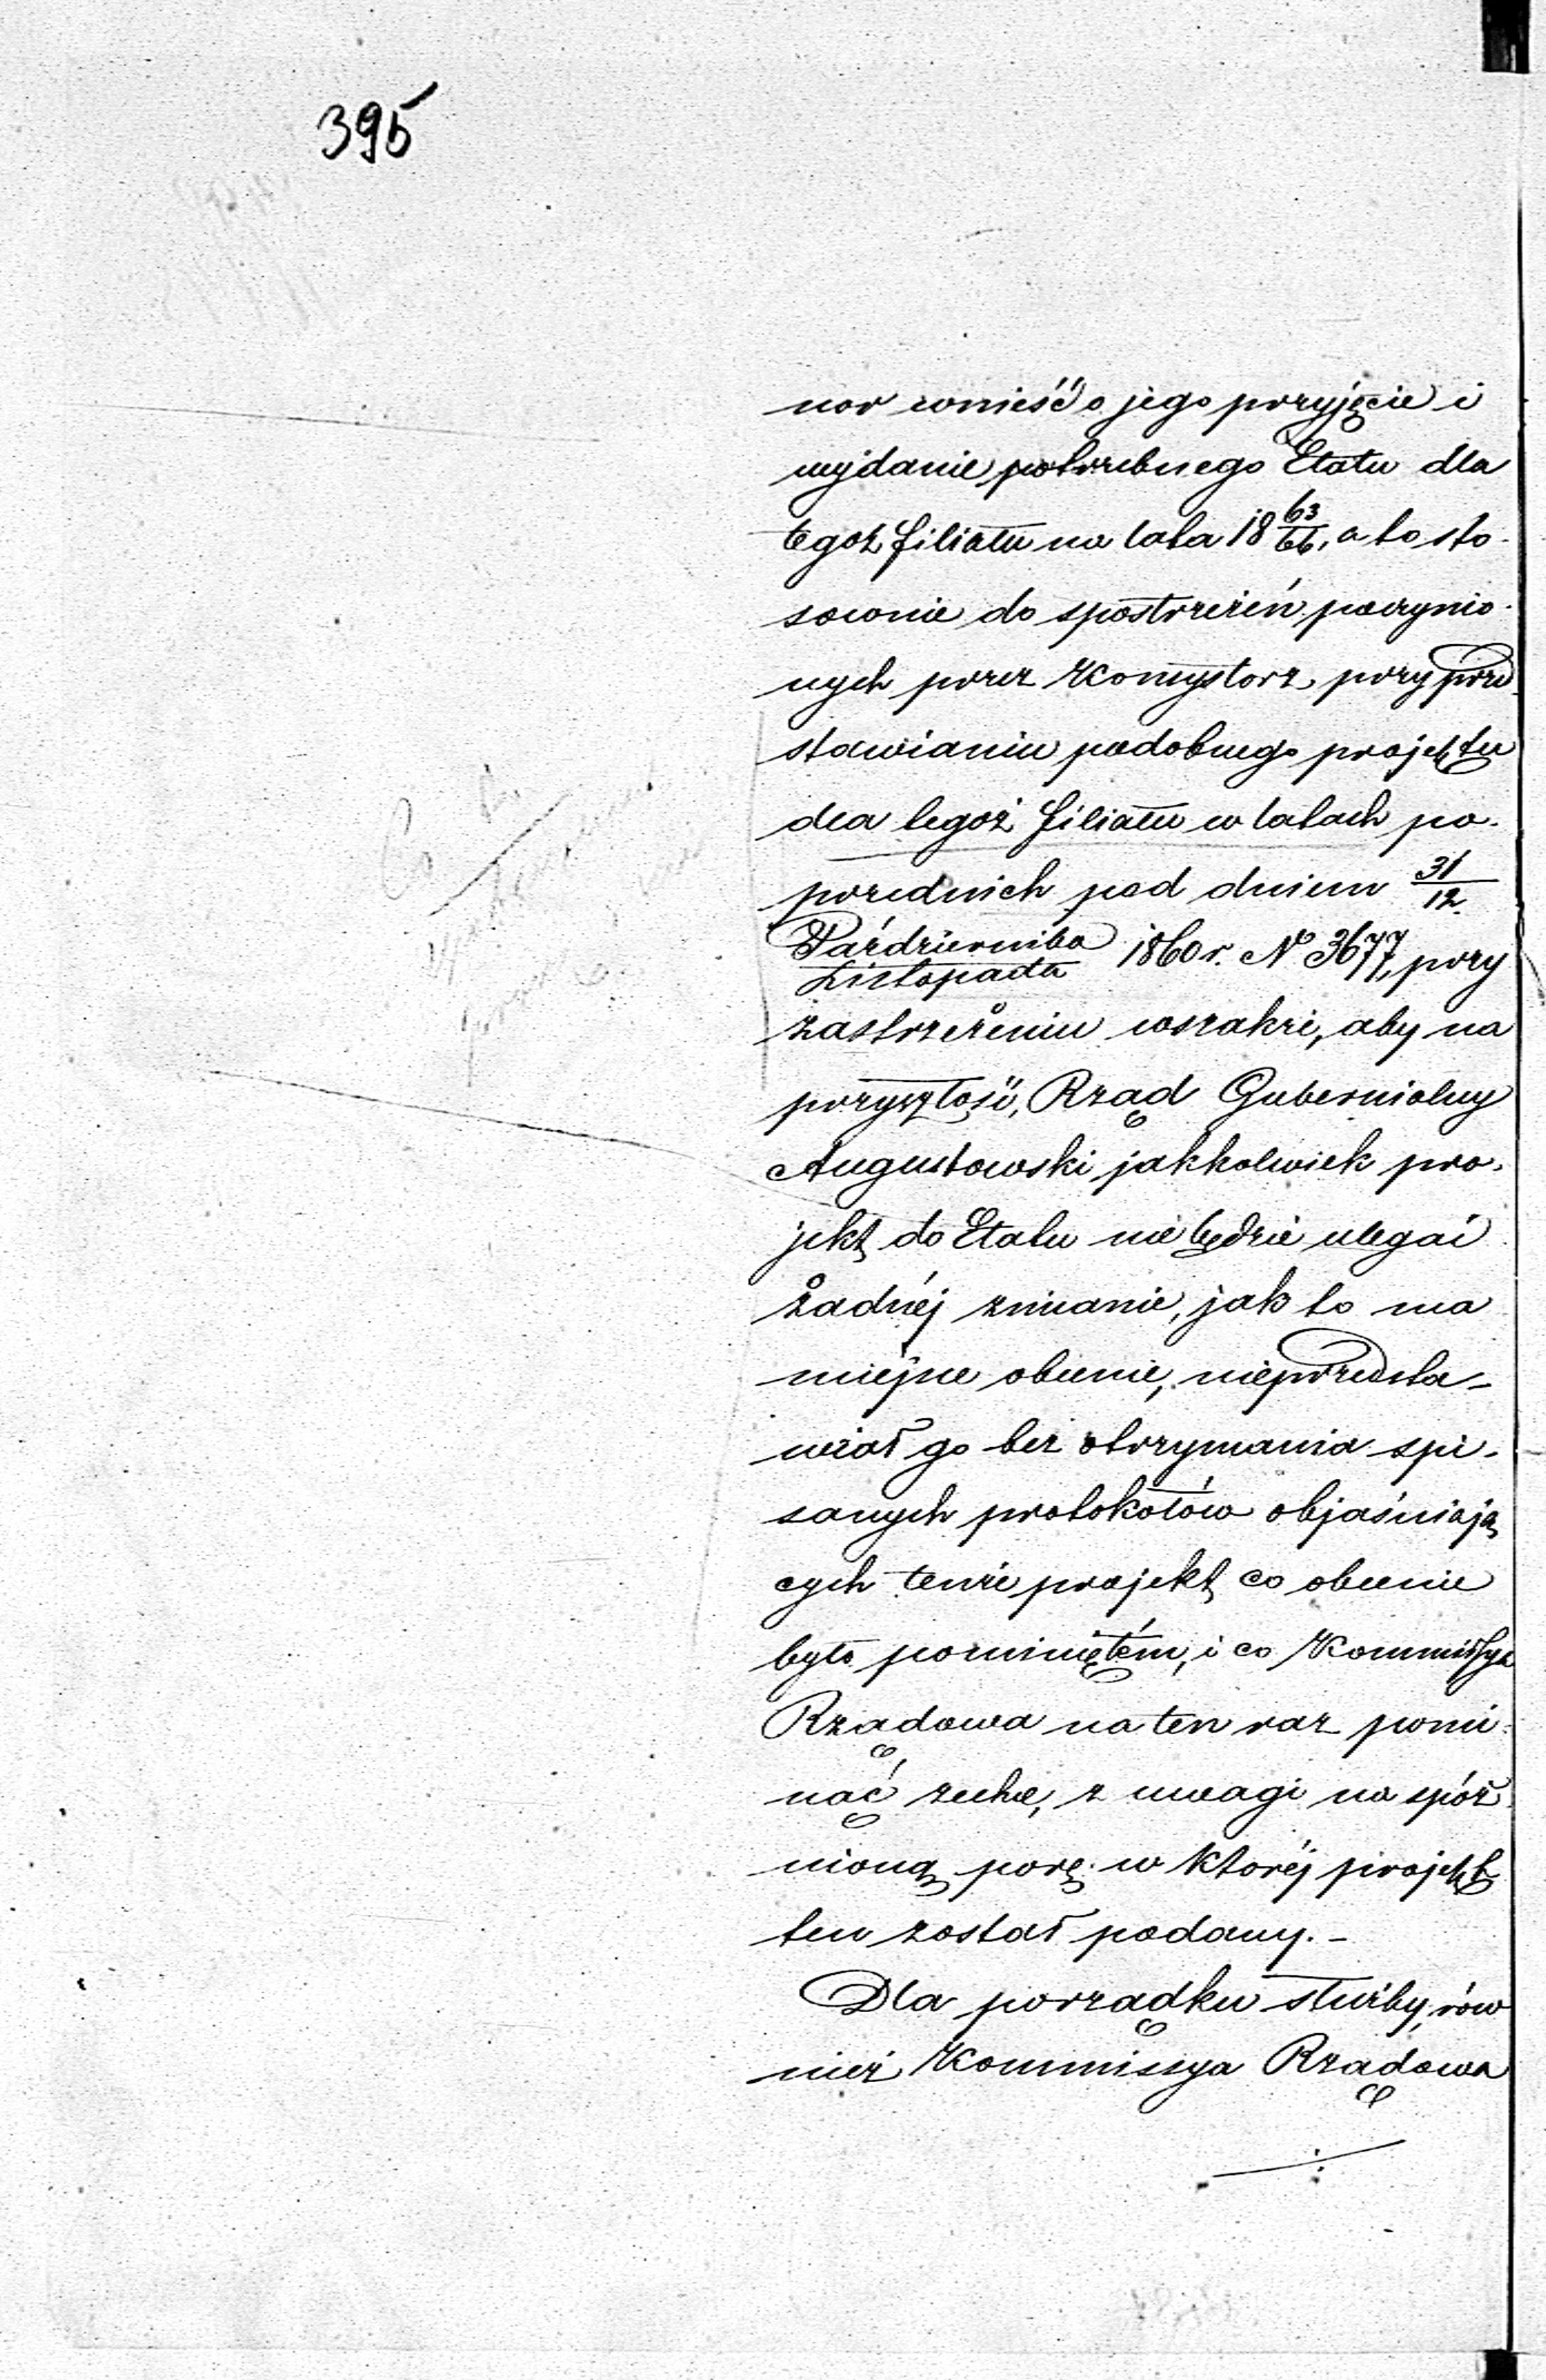 395
nor wnieść o jego przyjęcie i
wydanie potrzebnego Etatu dla
tegoż filiatu na lata 18 63/66, a to sto-
sownie do spostrzeżeń poczynio-
nych przez Konsystorz, przy przed-
stawianiu podobnego projektu
dla tegoż filiatu w latach po-
przednich pod dniem 31/12
Października/Listopada 1860 r. N° 3677, przy
zastrzeżeniu wszakże, aby na
przyszłość, Rząd Gubernialny
Augustowski jakkolwiek pro-
jekt do Etatu nie będzie ulegać
żadnéj zmianie, jak to ma
miejsce obecnie, nieprzedsta-
wiał go bez otrzymania spi-
sanych protokołów objaśniają
cych tenże projekt, co obecnie
było pominiętém, i co Kommissya
Rządowa na ten raz pomi-
nąć zechce, z uwagi na spóź-
nioną porę w któréj projekt
ten został podany. -
Dla porządku służby, rów
nież Kommissya Rządowa